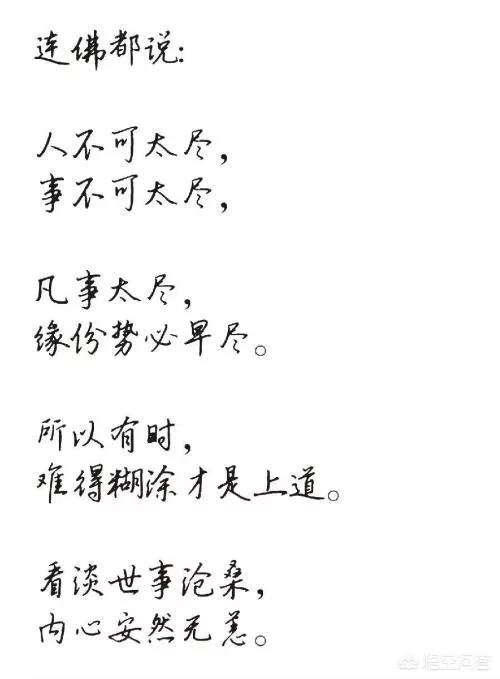 连佛都说:
人不可太尽,
事不可太尽,
凡事太尽,
缘份势必早尽。
所以有时,
难得糊涂才是上道。
看淡世事沧桑,
内心安然无恙。
悟空问答